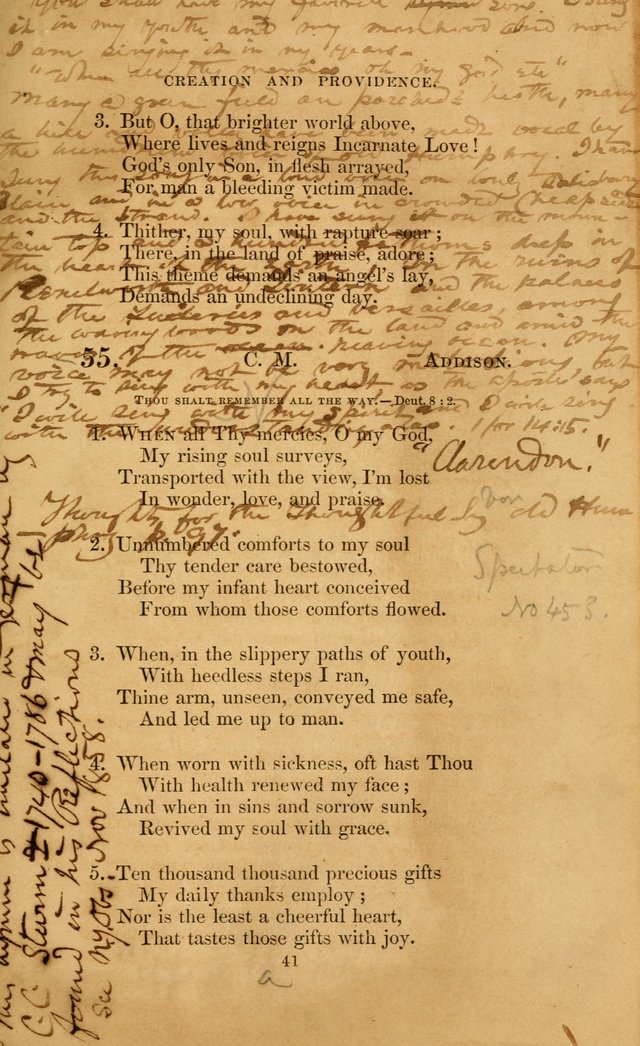 You shall have my favorite Song. I sung
it in my Youth and my manhood and now
I am singing it in my years—
"When all thy mercies oh my god Etc"
CREATION AND PROVIDENCE.
many a green field and parched heath, many
3. But O, that brighter world above,
a made vocal by
Where lives and reigns Incarnate Love!
the
God's only Son, in flesh arrayed,
sung this on Salisbury
For man a bleeding victim made.
plain and in a low voice in crowded Cheapside
and the Strand. I have sung it on the moun-
4. Thither, my soul, with rapture soar;
tain top and a hundred fathoms deep in
There, in the land of praise, adore;
the on the ruins of
This theme demands an angel's lay,
Kenilworth and and the palaces
Demands an undeclining day.
of the Tuileries and Versailles, among
the waving woods on the land and amid the
of the ocean. heaving ocean. My
55. C. M. ADDISON.
voice may not be very but
I try to sing with my heart as the apostle says
THOU SHALT REMEMBER ALL THE WAY.—Deut. 8:2.
"I will sing with my Spirit and I will sing
with the understanding also. 1 Cor 14:15.
1. WHEN all Thy mercies, O my God,
My rising soul surveys,
"Clarendon."
Transported with the view, I'm lost
In wonder, love, and praise.
Thoughts for the Thoughtful by Old Hum
phrey p 97.
2. Unnumbered comforts to my soul
Thy tender care bestowed,
Spectator
Before my infant heart conceived
From whom those comforts flowed.
No 453.
3. When, in the slippery paths of youth,
With heedless steps I ran,
Thine arm, unseen, conveyed me safe,
And led me up to man.
4. When worn with sickness, oft hast Thou
With health renewed my face;
And when in sins and sorrow sunk,
Revived my soul with grace.
5. Ten thousand thousand precious gifts
My daily thanks employ;
Nor is the least a cheerful heart,
That tastes those gifts with joy.
41
a
This hymn is imitated in German by
C.C. Sturm 1740-1786 & may be
found in his Reflections
see NY Obs Nov 1858.